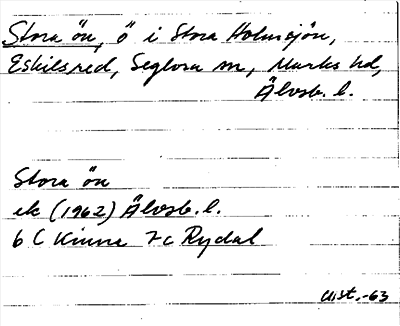 Stora ön, ö i Stora Holmsjön,
Eskilsred, Seglora sn, Marks hd,
Älvsb. l.
Stora ön
ek (1962) Älvsb. l.
6 C Kinna 7 c Rydal
-63